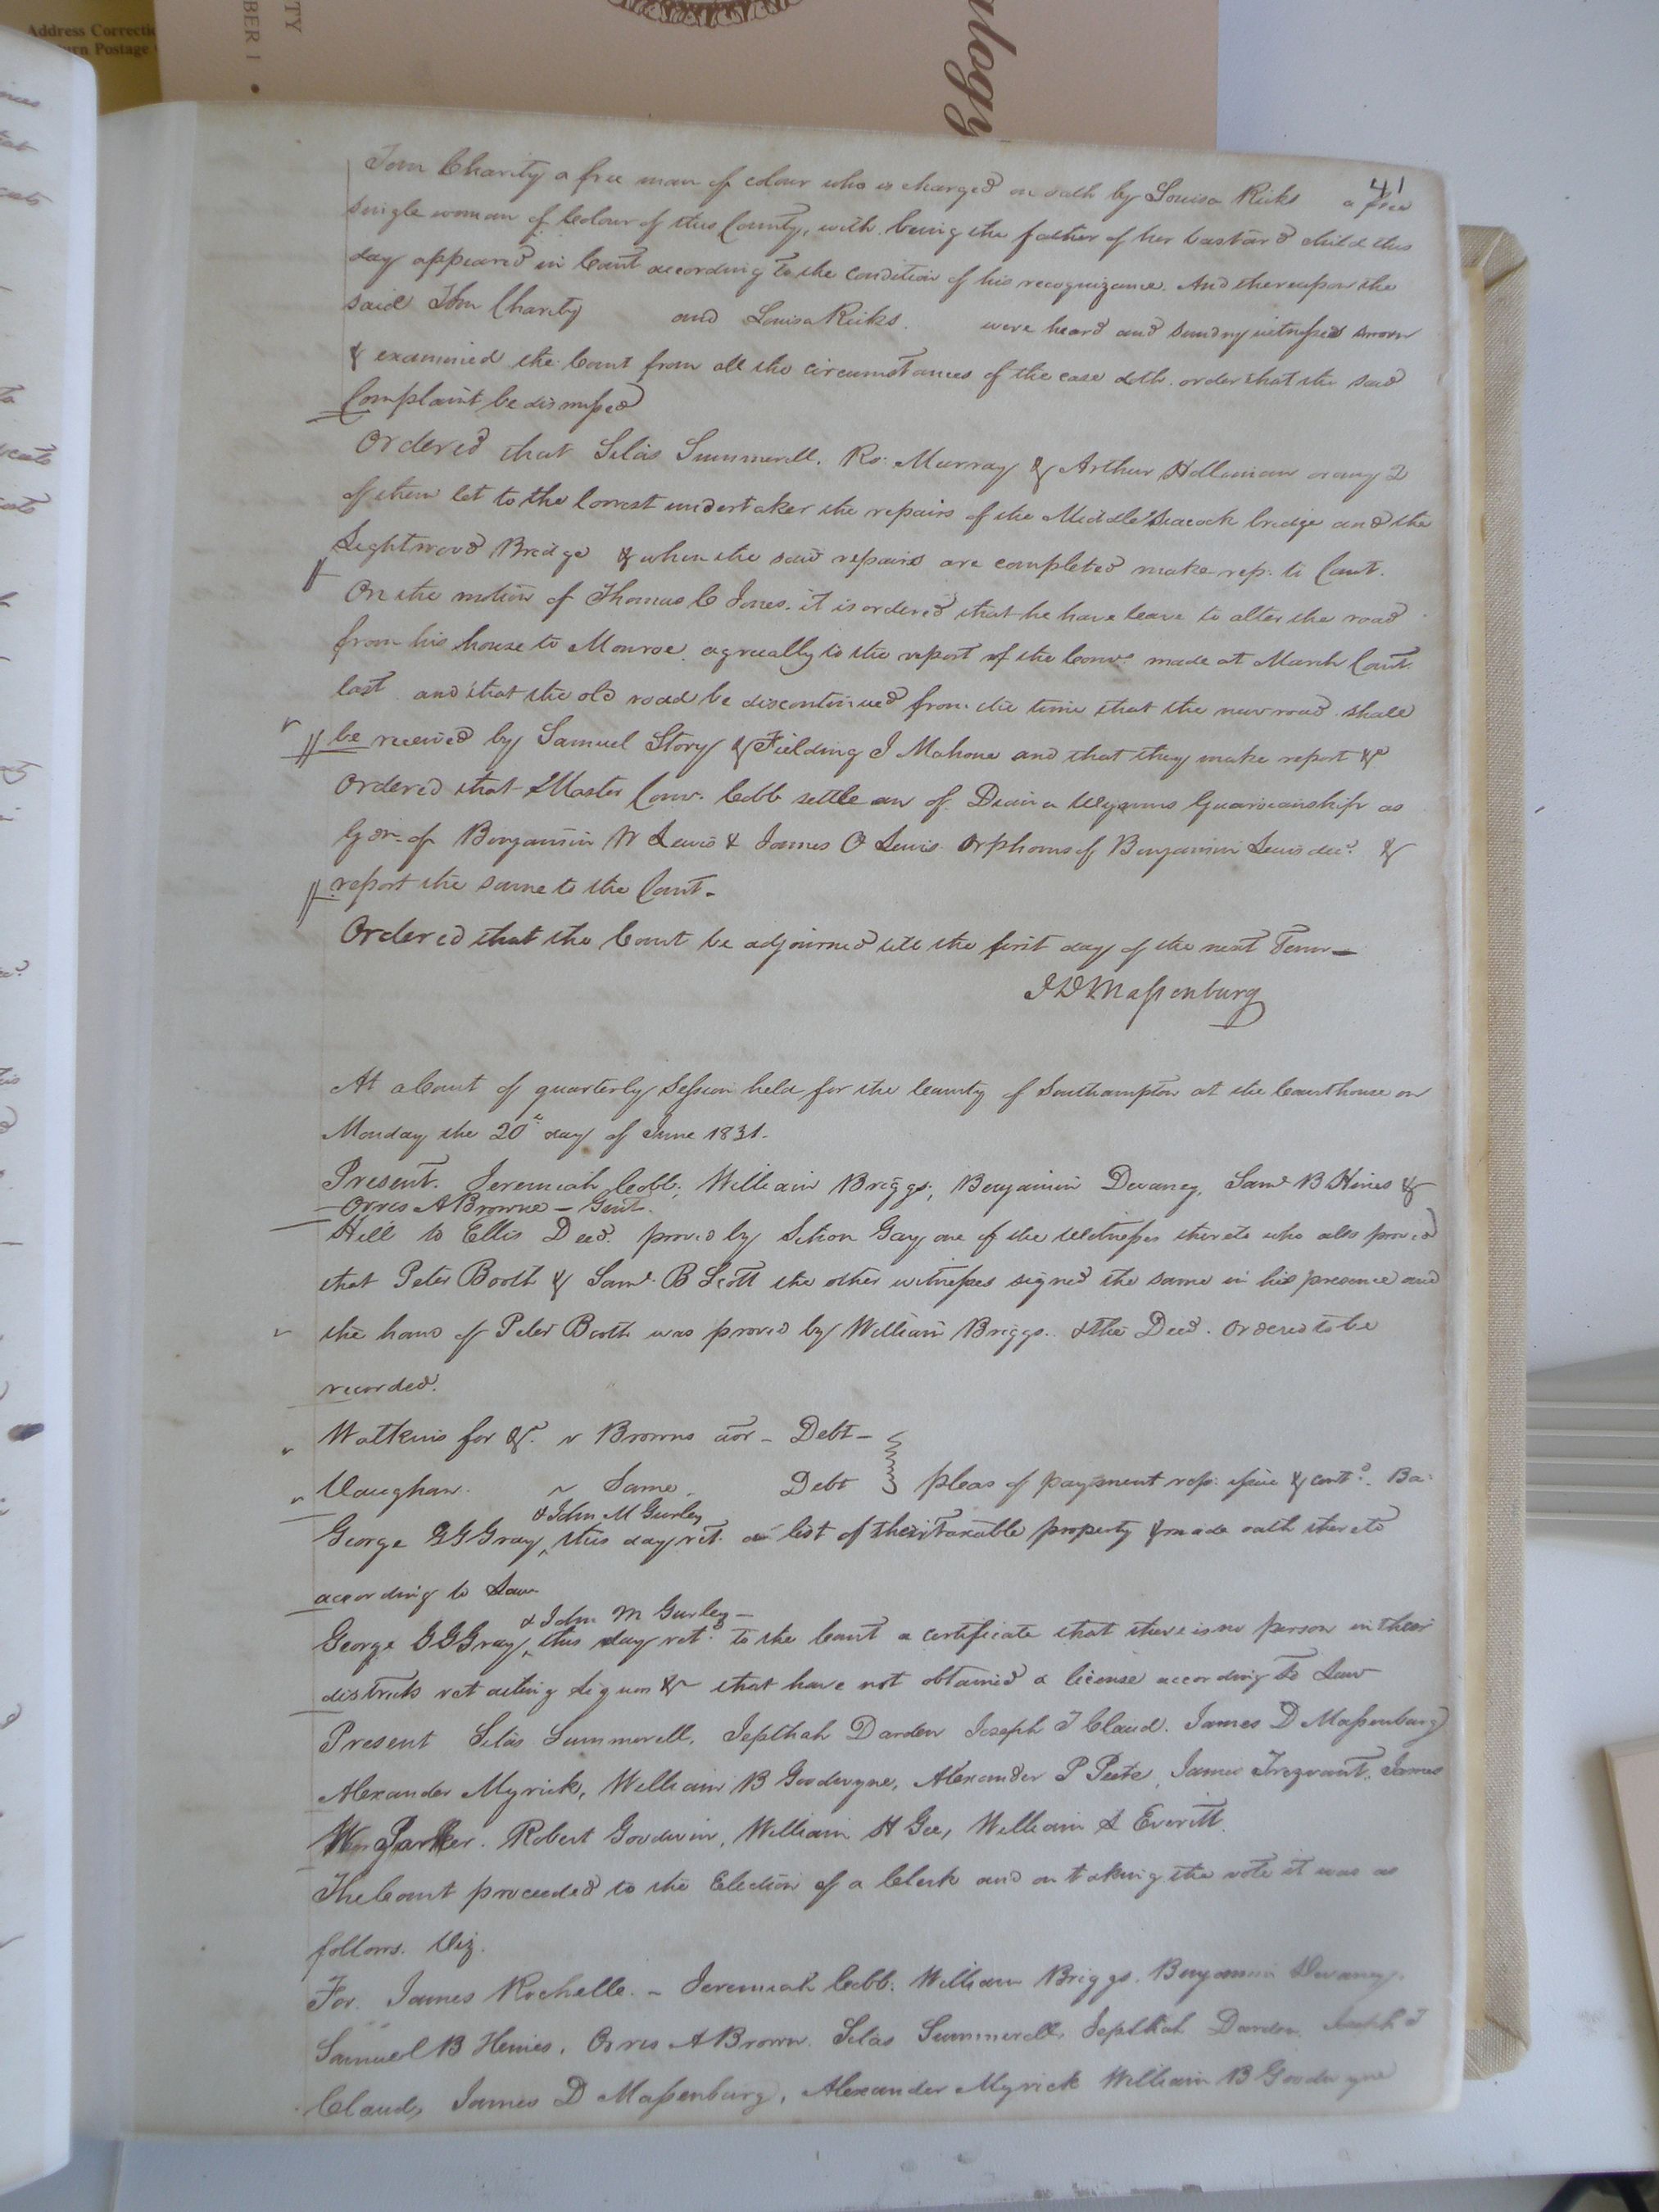 Address Correction
Return Postage
TY
BER 1 •
ulogy
41
Tom Charity a free man of colour who is charged on oath by Louisa Ricks a free
single woman of Colour of this County, with being the father of her bastard child this
day appeared in Court according to the condition of his recognizance. And thereupon the
said Tom Charity and Louisa Ricks. were heard and sundry witnesses sworn
& examined the Court from all the circumstances of the case doth order that the said
Complaint be dismissed
Ordered that Silas Summerell. Ro: Murray & Arthur Holleman or any 2
of them let to the lowest undertaker the repairs of the Middle Seacock bridge and the
Lightwood Bridge & when the said repairs are completed make rep. to Court.
On the motion of Thomas C Jones. it is ordered that he have leave to alter the road
from his house to Monroe agreeably to the report of the Comrs. made at March Court
last and that the old road be discontinued from the time that the new road shall
be received by Samuel Story & Fielding J Mahone and that they make report &c
Ordered that Master Comr. Cobb settle an of Wynns Guardianship as
Gdn. of Benjamin W Lewis & James O Lewis Orphans of Benjamin Lewis decd. &
report the same to the Court.
Ordered that the Court be adjourned till the first day of the next Term—
J D Massenburg
At a Court of quarterly Session held for the County of Southampton at the Courthouse on
Monday the 20th day of June 1831.
Present. Jeremiah Cobb, William Briggs, Benjamin Devaney, Saml B Hines &
Orris A Browne — Gent.
Hill to Ellis Deed. proved by Gay one of the Witnesses thereto who also proved
that Peter Booth & Saml. B Scott the other witnesses signed the same in his presence and
the hand of Peter Booth was proved by William Briggs. & the Deed. Ordered to be
recorded.
Watkins for &c. v Browns — Debt —
Vaughan. v Same. Debt } pleas of payment rep: issue & contd. Ba:
& John M Gurley
George G G Gray, this day ret. a list of their taxable property & made oath thereto
according to Law
& John M Gurley —
George G G Gray, this day retd. to the Court a certificate that there is no person in their
districts retailing liquors &c that have not obtained a license according to Law
Present Silas Summerell, Jepthah Darden Joseph T Claud. James D Massenburg
Alexander Myrick, William B Goodwyne, Alexander P Peete, James Trezvant. James
W Parker. Robert Goodwin, William H Gee, William A Everitt.
The Court proceeded to the Election of a Clerk and on taking the vote it was as
follows. Viz.
For. James Rochelle. — Jeremiah Cobb. William Briggs. Benjamin Devaney.
Samuel B Hines. Orris A Brown. Silas Summerell, Jepthah Darden, Joseph T
Claud, James D Massenburg, Alexander Myrick William B Goodwyne